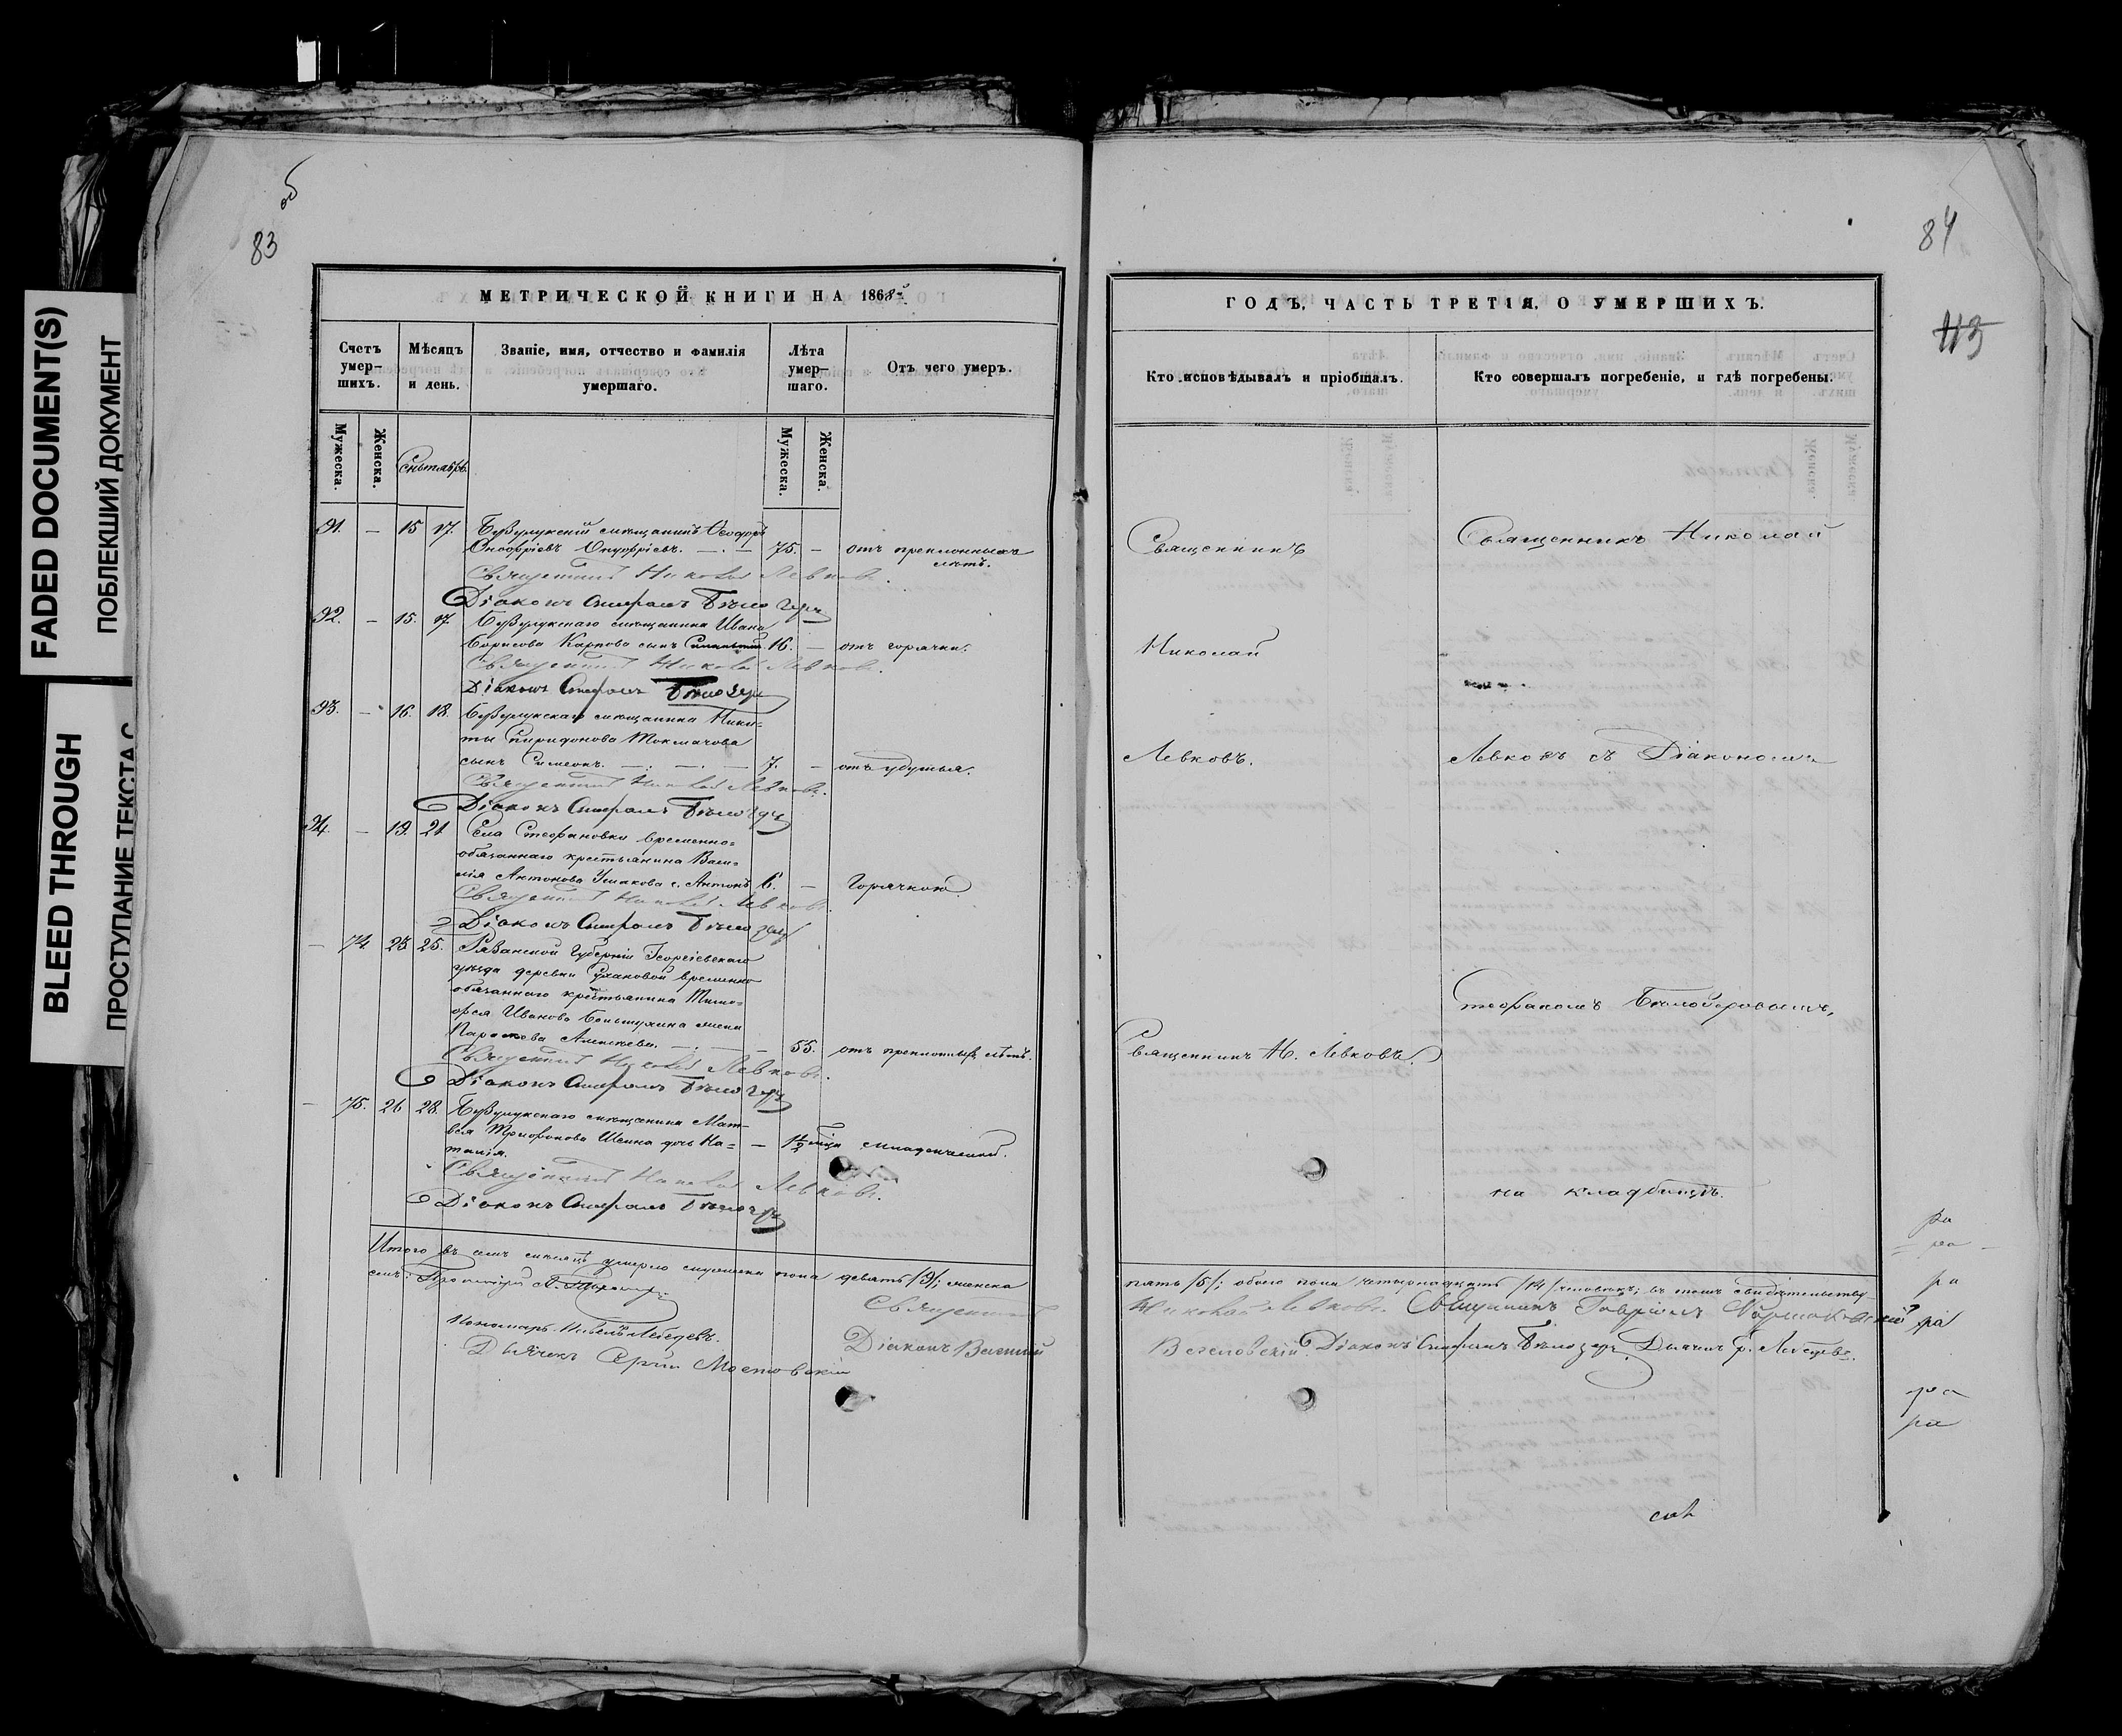 FADED DOCUMENT(S)
ПОБЛЕКШИЙ ДОКУМЕНТ
BLEED THROUGH
ПРОСТУПАНИЕ ТЕКСТА С
об
83
МЕТРИЧЕСКОЙ КНИГИ НА 1868й
Счетъ умер-шихъ.
Мѣсяцъ и день.
Званіе, имя, отчество и фамилія умершаго.
Лѣта умер-шаго.
Отъ чего умеръ.
Мужеска.
Женска.
Сентябрь
Мужеска.
Женска.
91. – 15 17. Бузулукскій мѣщанинъ Ѳеодоръ
Онофріевъ Онуфріевъ. 75. – отъ преклонныхъ
лѣтъ.
Священникъ Николай Левковъ.
Діаконъ Стефанъ Бѣлозеръ
92. – 15. 17. Бузулукскаго мѣщанина Ивана
Борисова Карпова сынъ 16. – отъ горячки.
Священникъ Николай Левковъ.
Діаконъ Стефанъ Бѣлозеръ
93. – 16. 18. Бузулукскаго мѣщанина Ники-
ты Спиридонова Токмачова
сынъ Симеонъ. 7. – отъ удушья.
Священникъ Николай Левковъ.
Діаконъ Стефанъ Бѣлозеръ
94. – 19. 21 Села Стефановки временно-
обязаннаго крестьянина Васи-
лія Антонова Ушакова с. Антонъ 6. – Горячкою.
Священникъ Николай Левковъ.
Діаконъ Стефанъ Бѣлозеръ
– 74 23 25. Рязанской Губерніи Георгіевскаго
уѣзда деревни временно
обязаннаго крестьянина Тимо-
фея Иванова жена
Параскева Алексѣева. 55. отъ преклонныхъ лѣтъ.
Священникъ Николай Левковъ.
Діаконъ Стефанъ Бѣлозеръ
– 75. 26 28. Бузулукскаго мѣщанина Мат-
вея Трифонова Шеина дочь На- – 1½ мѣца младенческой.
талія.
Священникъ Николай Левковъ.
Діаконъ Стефанъ Бѣлозеръ
Итого въ семъ мѣсяцѣ умерло мужеска пола девять /9/; женска
Священникъ
Пономарь Павелъ Лебедевъ.
Діаконъ Василій
Дьячекъ Сергій Мостовскій
84
113
ГОДЪ, ЧАСТЬ ТРЕТІЯ, О УМЕРШИХЪ.
Кто исповѣдывалъ и пріобщалъ.
Кто совершалъ погребеніе, и гдѣ погребены.
Священникъ
Священникъ Николай
Николай
Левковъ.
Левковъ съ Діакономъ
Стефаномъ Бѣлозеровымъ,
Священникъ Н. Левковъ.
на кладбищѣ.
пять /5/; обоего пола четырнадцать /14/ человѣкъ; въ томъ свидѣтельству-
Николай Левковъ. Священникъ Гавріилъ
Веселовскій. Діаконъ Стефанъ Бѣлозеръ. Дьячекъ Ф. Лебедевъ.
ра
ра
ра
ра
ра
ра